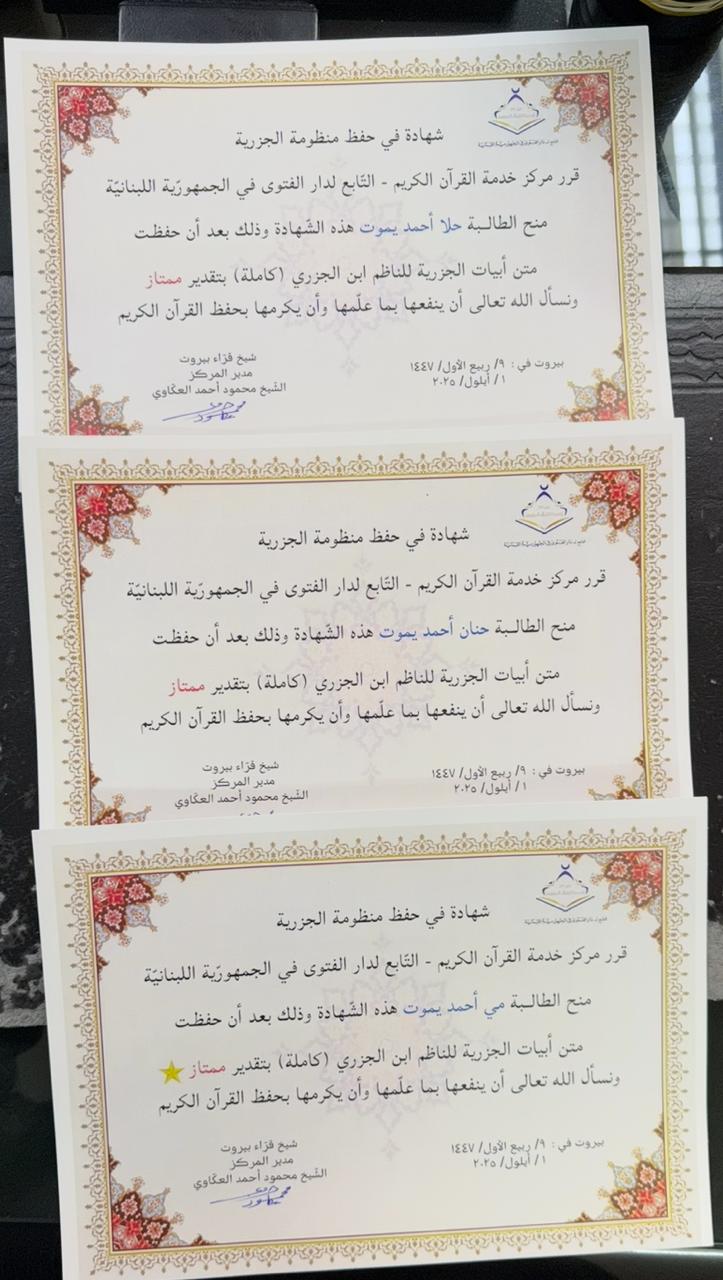 شهادة في حفظ منظومة الجزرية
قرر مركز خدمة القرآن الكريم - التّابع لدار الفتوى في الجمهوريّة اللبنانيّة
منح الطالـبة حلا أحمد يموت هذه الشّهادة وذلك بعد أن حفظت
متن أبيات الجزرية للناظم ابن الجزري (كاملة) بتقدير ممتاز
ونسأل الله تعالى أن ينفعها بما علّمها وأن يكرمها بحفظ القرآن الكريم
بيروت في : ٩/ ربيع الأول/ ١٤٤٧
١/ أيلول/ ٢٠٢٥
شيخ قرّاء بيروت
مدير المركز
الشّيخ محمود أحمد العكّاوي
شهادة في حفظ منظومة الجزرية
قرر مركز خدمة القرآن الكريم - التّابع لدار الفتوى في الجمهوريّة اللبنانيّة
منح الطالـبة حنان أحمد يموت هذه الشّهادة وذلك بعد أن حفظت
متن أبيات الجزرية للناظم ابن الجزري (كاملة) بتقدير ممتاز
ونسأل الله تعالى أن ينفعها بما علّمها وأن يكرمها بحفظ القرآن الكريم
بيروت في : ٩/ ربيع الأول/ ١٤٤٧
١/ أيلول/ ٢٠٢٥
شيخ قرّاء بيروت
مدير المركز
الشّيخ محمود أحمد العكّاوي
شهادة في حفظ منظومة الجزرية
قرر مركز خدمة القرآن الكريم - التّابع لدار الفتوى في الجمهوريّة اللبنانيّة
منح الطالـبة مي أحمد يموت هذه الشّهادة وذلك بعد أن حفظت
متن أبيات الجزرية للناظم ابن الجزري (كاملة) بتقدير ممتاز
ونسأل الله تعالى أن ينفعها بما علّمها وأن يكرمها بحفظ القرآن الكريم
بيروت في : ٩/ ربيع الأول/ ١٤٤٧
١/ أيلول/ ٢٠٢٥
شيخ قرّاء بيروت
مدير المركز
الشّيخ محمود أحمد العكّاوي